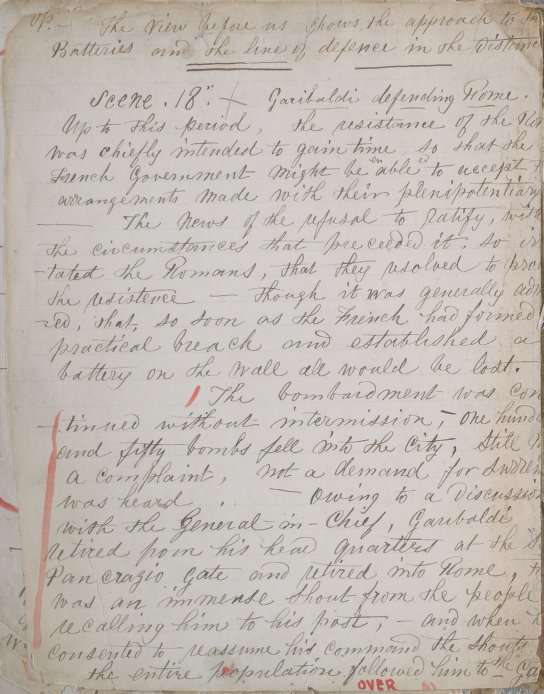 up. — The view before us shows the approach to the
Batteries and the line of defence in the distance
Scene. 18". Garibaldi defending Rome.
Up to this period, the resistance of the
was chiefly intended to gain time, so that the
French Government might be enabled to accept
arrangements made with their plenipotentiary
— The News of the refusal to ratify, with
the circumstances that preceeded it: so ir-
-tated the Romans, that they resolved to
the resistence — though it was generally
-ed, that, so soon as the French had formed
practical breach and established a
battery on the wall all would be lost. —
The bombardment was con
-tinued without intermission, — one hund
and fifty bombs fell into the City, Still
a complaint, not a demand for
was heard. — Owing to a discussion
with the General in-Chief, Garibaldi
retired from his head quarters at the
Pancrazio Gate and retired into Rome,
was an immense shout from the people
recalling him to his post; — and when
consented to reassume his command the shouts
the entire population followed him to the
OVER